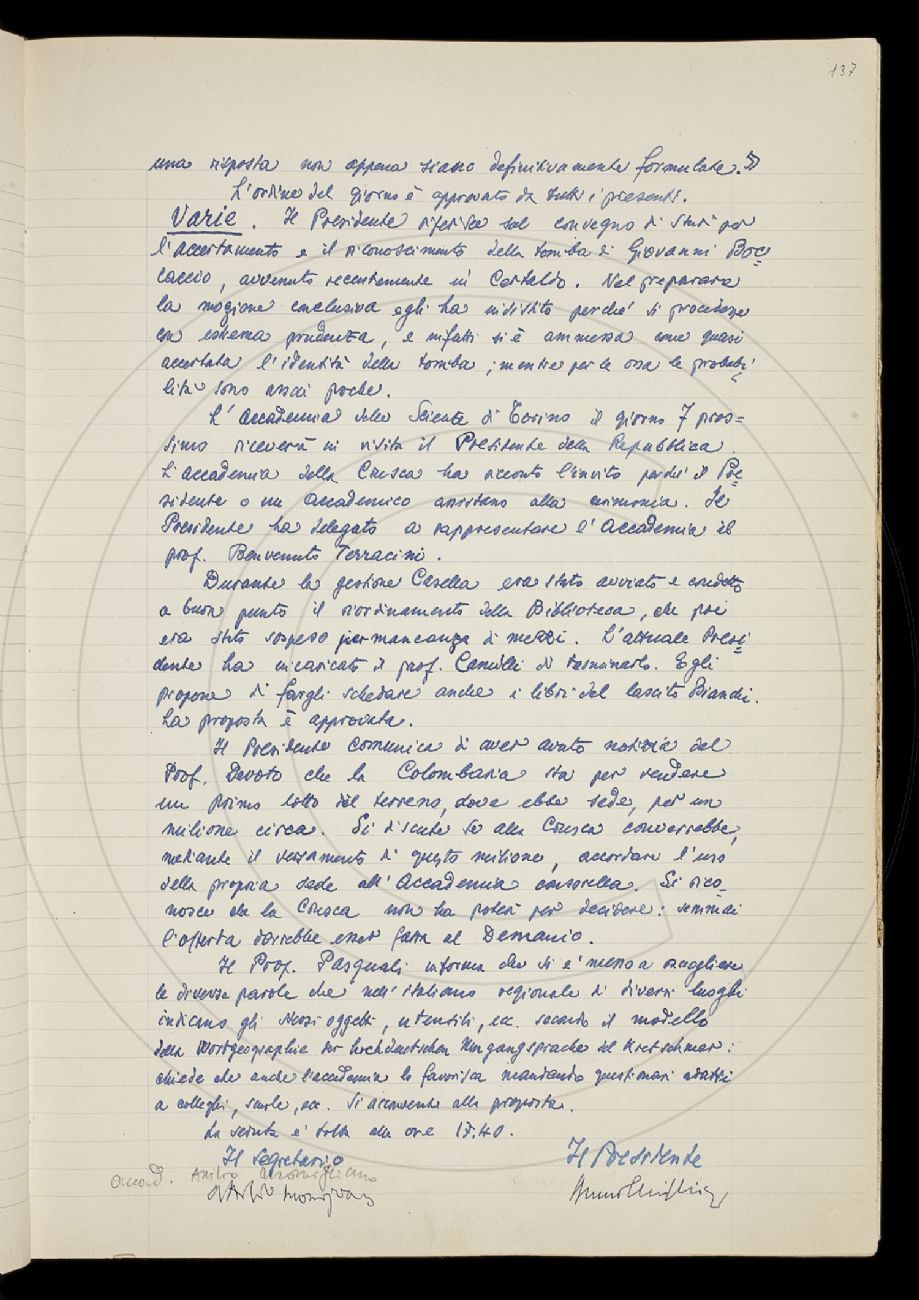 137
una risposta non appena siano definitivamente formulate.»
L'ordine del giorno è approvato da tutti i presenti.
Varie. Il Presidente riferisce sul convegno di studi per
l'accertamento e il riconoscimento della tomba di Giovanni Boc=
caccio, avvenuto recentemente in Certaldo. Nel preparare
la mozione conclusiva egli ha insistito perché si procedesse
con estrema prudenza, e infatti si è ammessa come quasi
accertata l'identità della tomba; mentre per le ossa le probabi-
lità sono assai poche.
L'Accademia delle Scienze di Torino il giorno 7 pros=
simo riceverà in visita il Presidente della Repubblica.
L'Accademia della Crusca ha ricevuto l'invito perché il Pre=
sidente o un Accademico assistano alla cerimonia. Il
Presidente ha delegato a rappresentare l'Accademia il
prof. Benvenuto Terracini.
Durante la gestione Casella era stato avviato e condotto
a buon punto il riordinamento della Biblioteca, che poi
era stato sospeso per mancanza di mezzi. L'attuale Presi=
dente ha incaricato il prof. Camilli di terminarlo. Egli
propone di fargli schedare anche i libri del lascito Bianchi.
La proposta è approvata.
Il Presidente comunica di aver avuto notizia dal
Prof. Devoto che la Colombaria sta per vendere
un primo lotto del terreno, dove ebbe sede, per un
milione circa. Si discute se alla Crusca converrebbe,
mediante il versamento di questo milione, accordare l'uso
della propria sede all'Accademia consorella. Si rico-
nosce che la Crusca non ha poteri per decidere: semmai
l'offerta dovrebbe esser fatta al Demanio.
Il Prof. Pasquali informa che si è messo a raccogliere
le diverse parole che nell'italiano regionale di diversi luoghi
indicano gli stessi oggetti, utensili, ecc. secondo il modello
della Wortgeographie der hochdeutschen Umgangsprache del Kretschmer:
chiede che anche l'accademia lo favorisca mandando questionari adatti
a colleghi, scuole, ecc. Si acconsente alla proposta.
La seduta è tolta alle ore 17.40.
Il Segretario Il Presidente
accad. Attilio Momigliano
Attilio Momigliano Bruno Migliorini